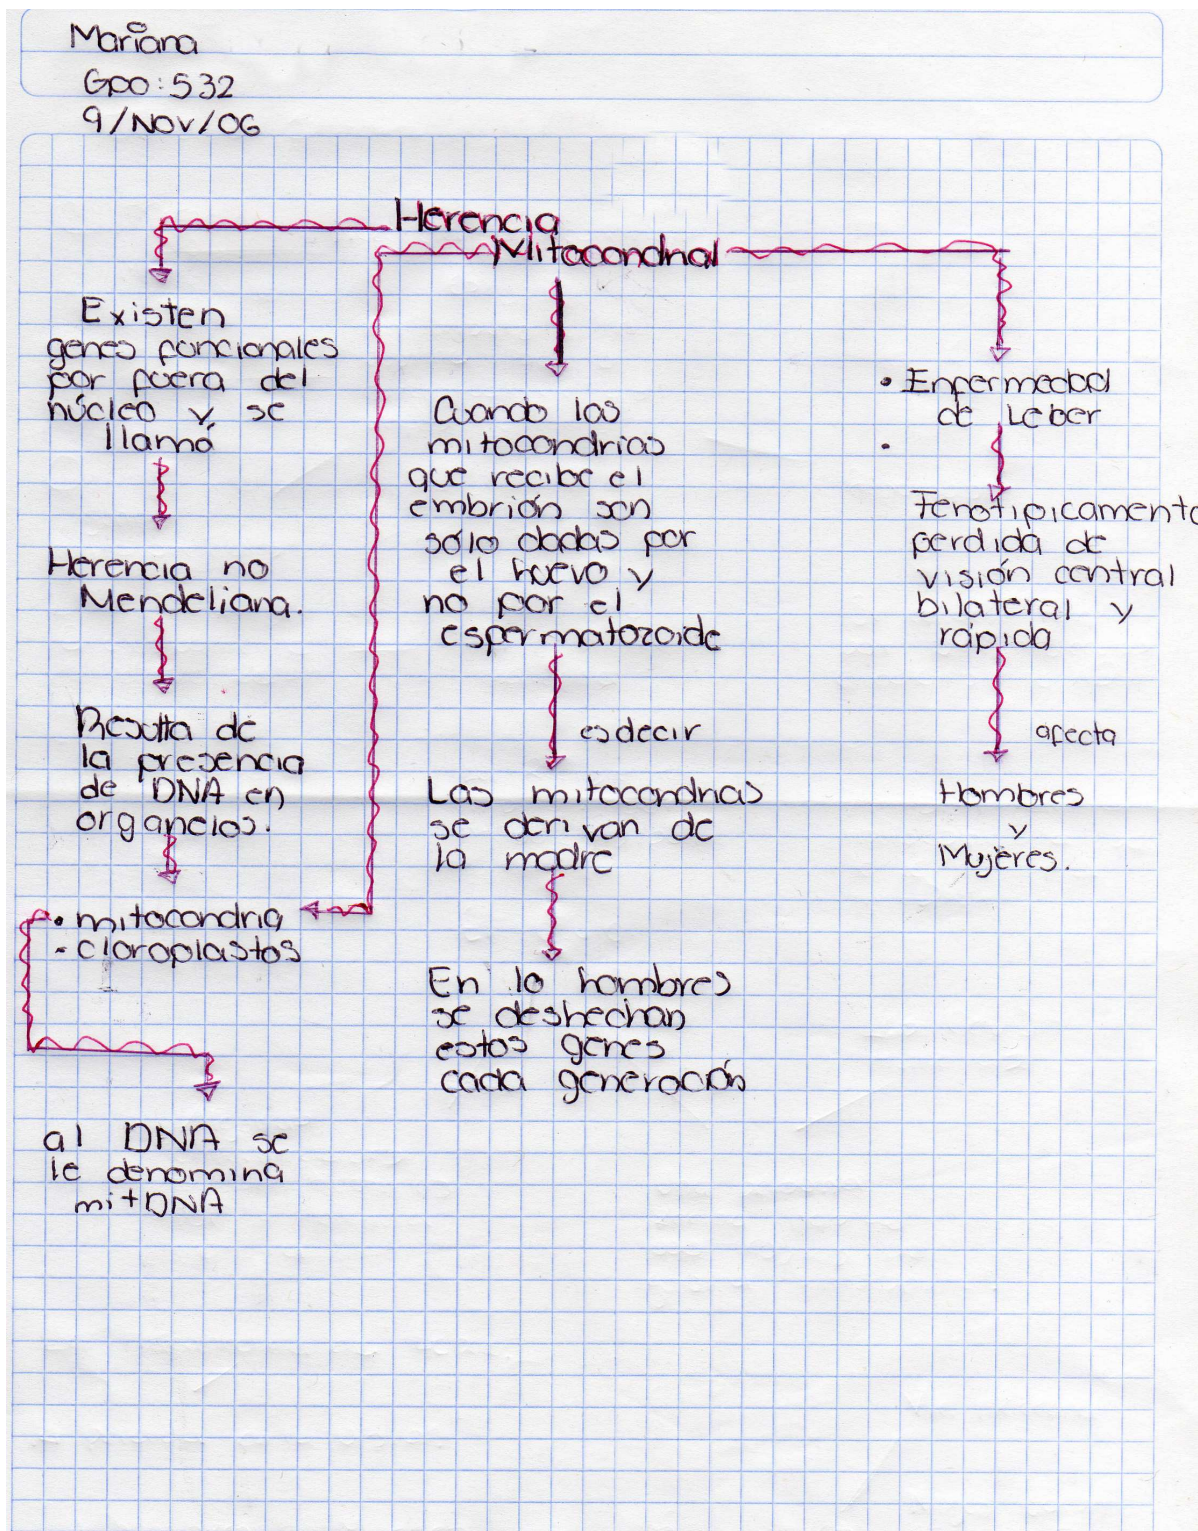 Mariana
Gpo: 532
9/Nov/06
Herencia
Mitocondrial
Existen
genes funcionales
por fuera del
núcleo y se
llama
Herencia no
Mendeliana.
Resulta de
la presencia
de DNA en
organelos.
• mitocondria
- cloroplastos
al DNA se
le denomina
mitDNA
Cuando las
mitocondrias
que recibe el
embrión son
sólo dadas por
el huevo y
no por el
espermatozoide
es decir
Las mitocondrias
se derivan de
la madre
En lo hombres
se deshechan
estos genes
cada generación
• Enfermedad
de Leber
•
Fenotipicamente
perdida de
visión central
bilateral y
rápida
afecta
Hombres
y
Mujeres.